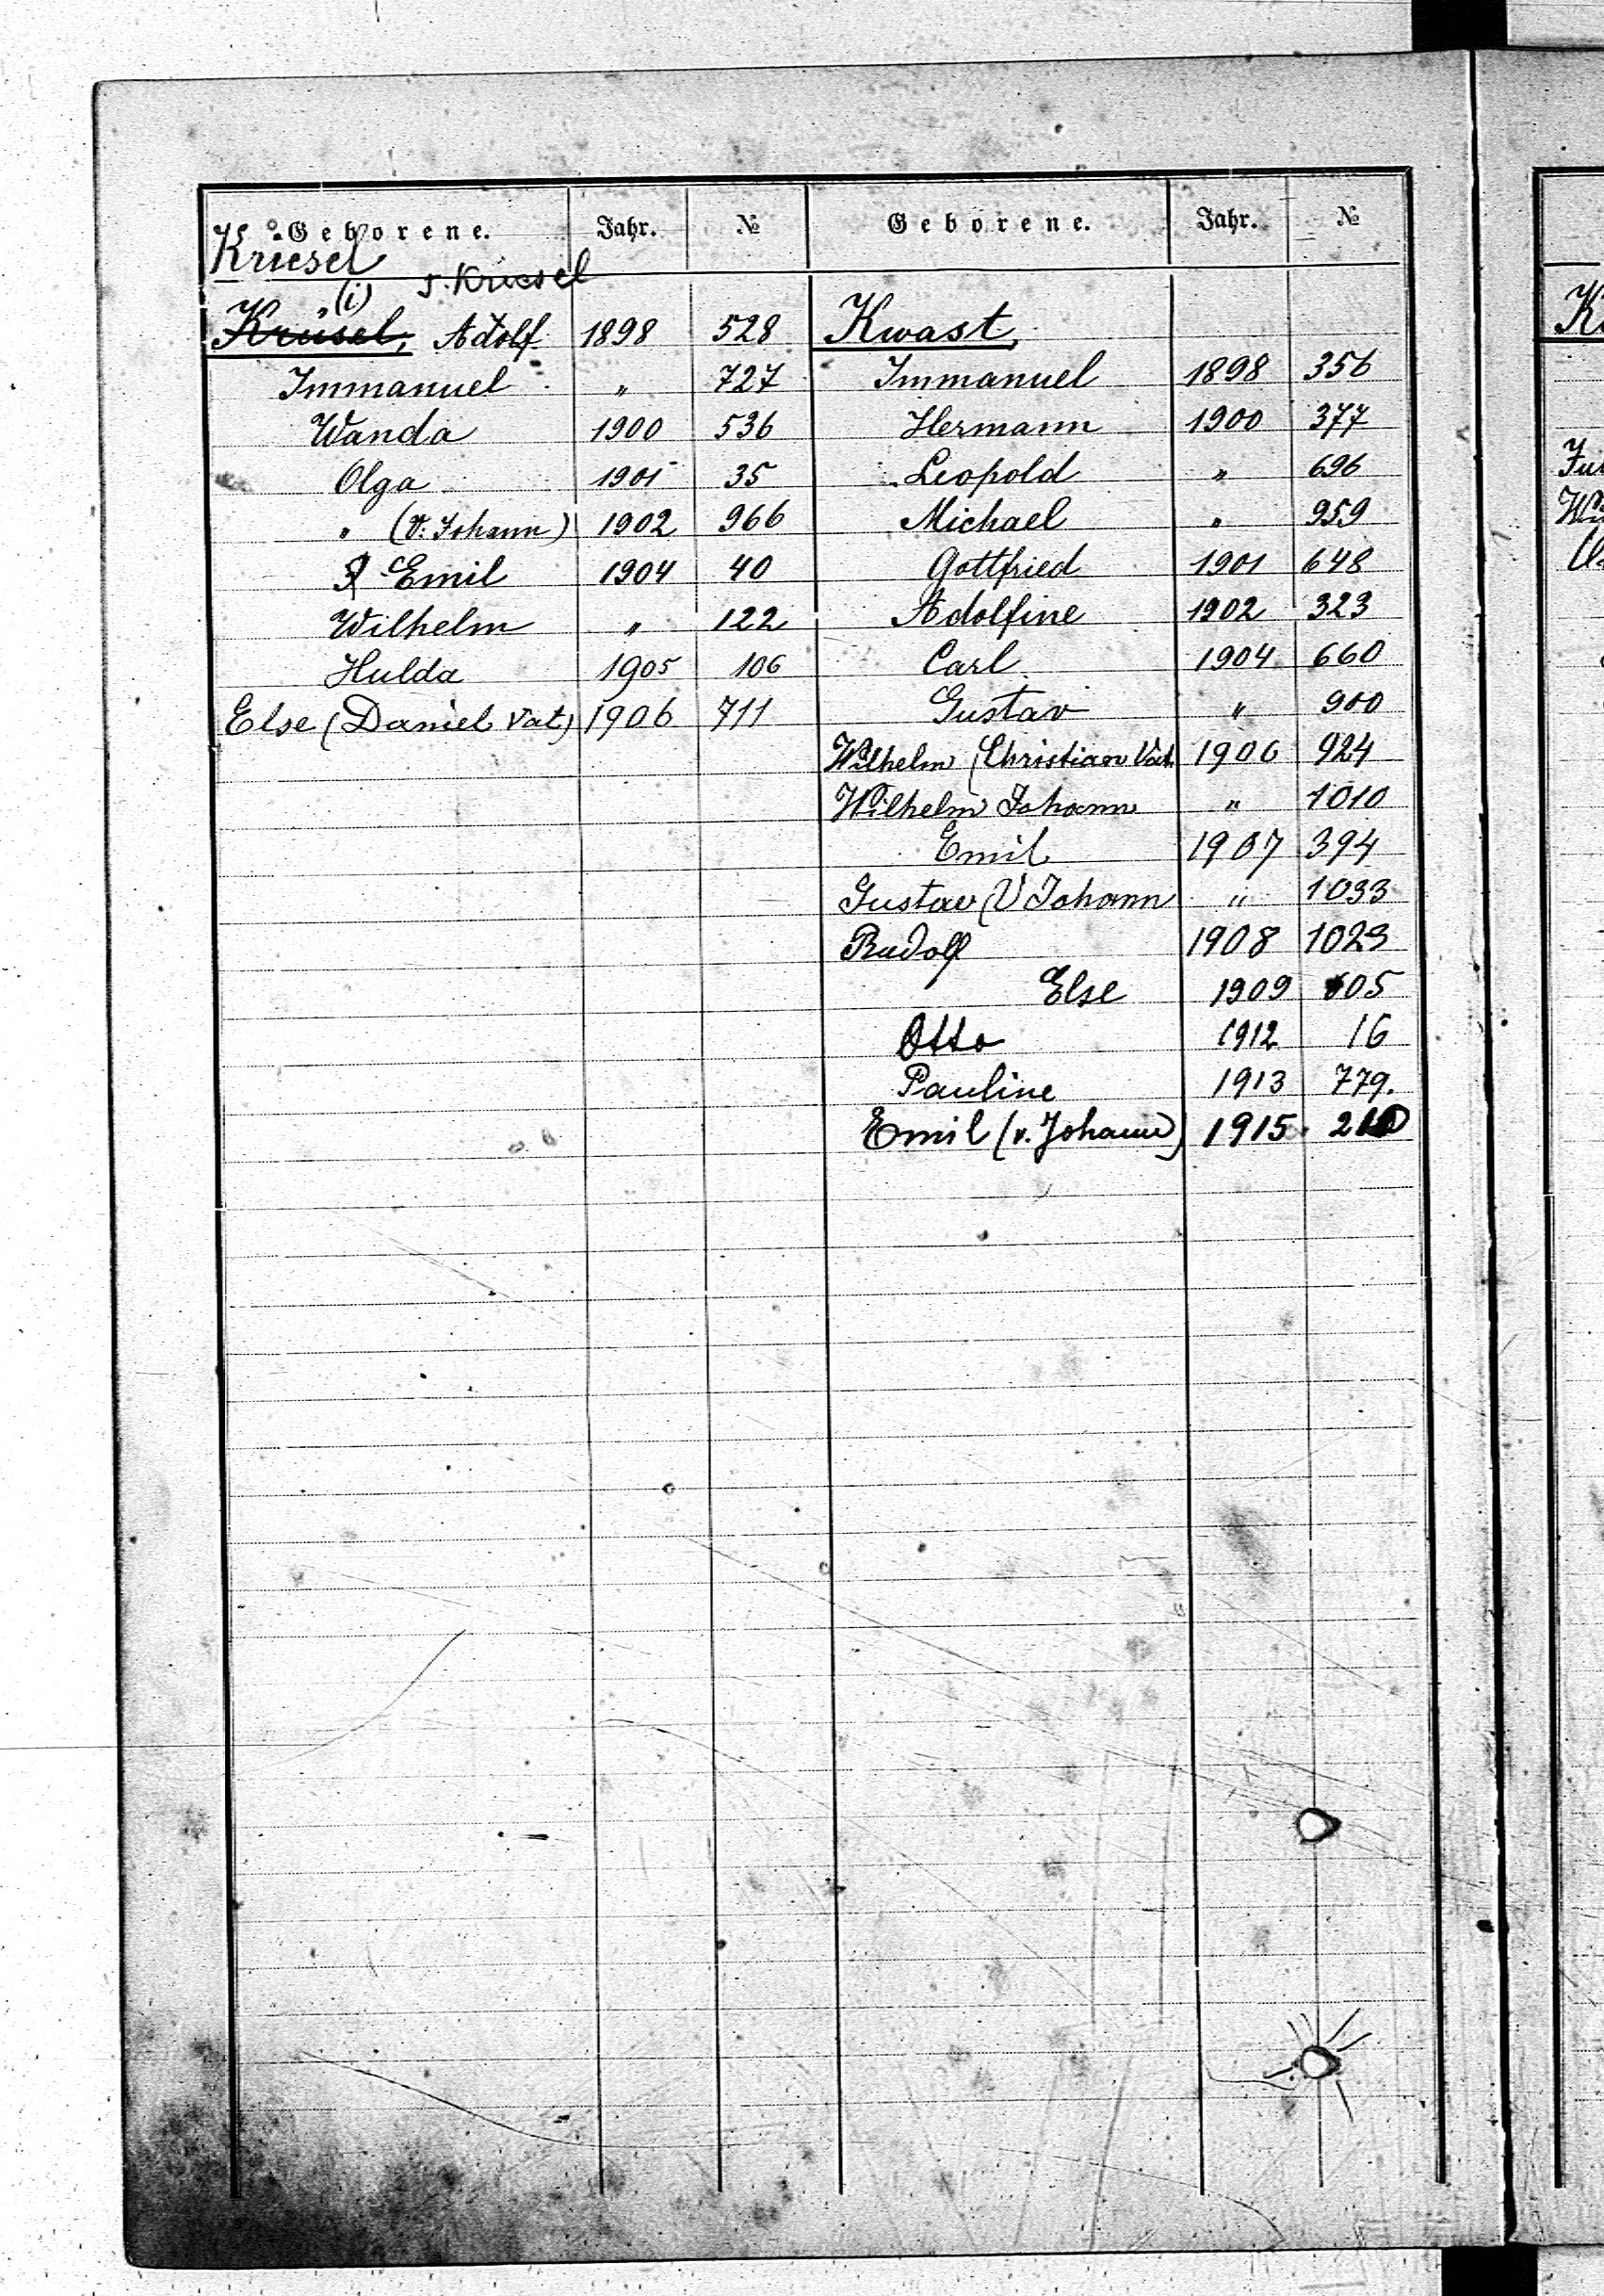 Geborene. Jahr. №
Kriesel
(i) s. Kriesel
Krüsel, Adolf 1898 528
Immanuel " 727
Wanda 1900 536
Olga 1901 35
" (V. Johann) 1902 966
Emil 1904 40
Wilhelm " 122
Hulda 1905 106
Else (Daniel Vat.) 1906 711
Geborene. Jahr. №
Kwast,
Immanuel 1898 356
Hermann 1900 377
Leopold " 696
Michael " 959
Gottfried 1901 648
Adolfine 1902 323
Carl 1904 660
Gustav " 900
Wilhelm (Christian Vat. 1906 924
Wilhelm Johann " 1010
Emil 1907 394
Gustav (V Johann " 1033
Rudolf 1908 1023
Else 1909 605
Otto 1912 16
Pauline 1913 779.
Emil (v. Johann) 1915